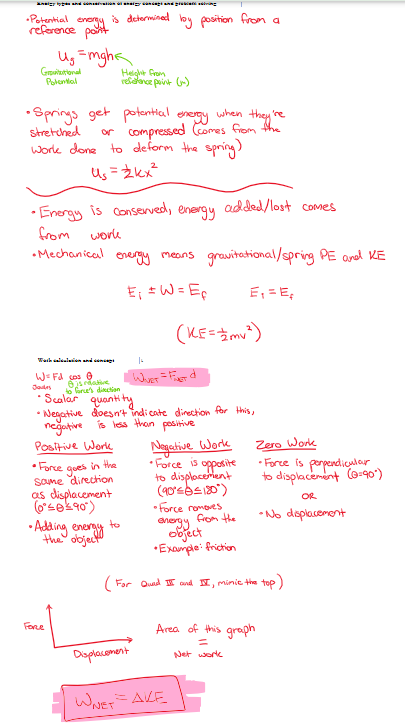 Energy types and conservation of energy concept and problem solving
•Potential energy is determined by position from a
reference point
Ug = mgh
Gravitational
Potential
Height from
reference point (m)
•Springs get potential energy when they're
stretched or compressed (comes from the
work done to deform the spring)
Us = ½kx²
•Energy is conserved, energy added/lost comes
from work
•Mechanical energy means gravitational/spring PE and KE
Ei ± W = Ef
Ei = Ef
(KE = ½mv²)
Work calculation and concept
W = Fd cos θ
Joules
θ is relative
to force's direction
WNET = FNET d
•Scalar quantity
•Negative doesn't indicate direction for this,
negative is less than positive
Positive Work
•Force goes in the
same direction
as displacement
(0°≤θ≤90°)
•Adding energy to
the object
Negative Work
•Force is opposite
to displacement
(90°≤θ≤180°)
•Force removes
energy from the
object
•Example: friction
Zero Work
•Force is perpendicular
to displacement (θ=90°)
OR
•No displacement
(For Quad III and IV, mimic the top)
Force
Displacement
Area of this graph
=
Net work
WNET = ΔKE